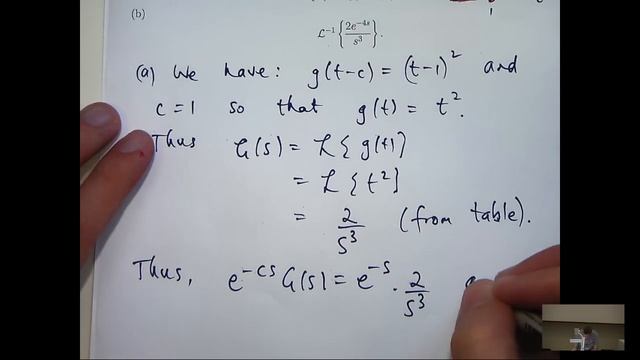 (b)
ℒ⁻¹{2e⁻⁴ˢ/s³}.
(a) We have: g(t-c) = (t-1)² and
c=1 so that g(t) = t².
Thus G(s) = ℒ{g(t)}
= ℒ{t²}
= 2/s³ (from table).
Thus, e⁻ᶜˢ G(s) = e⁻ˢ · 2/s³